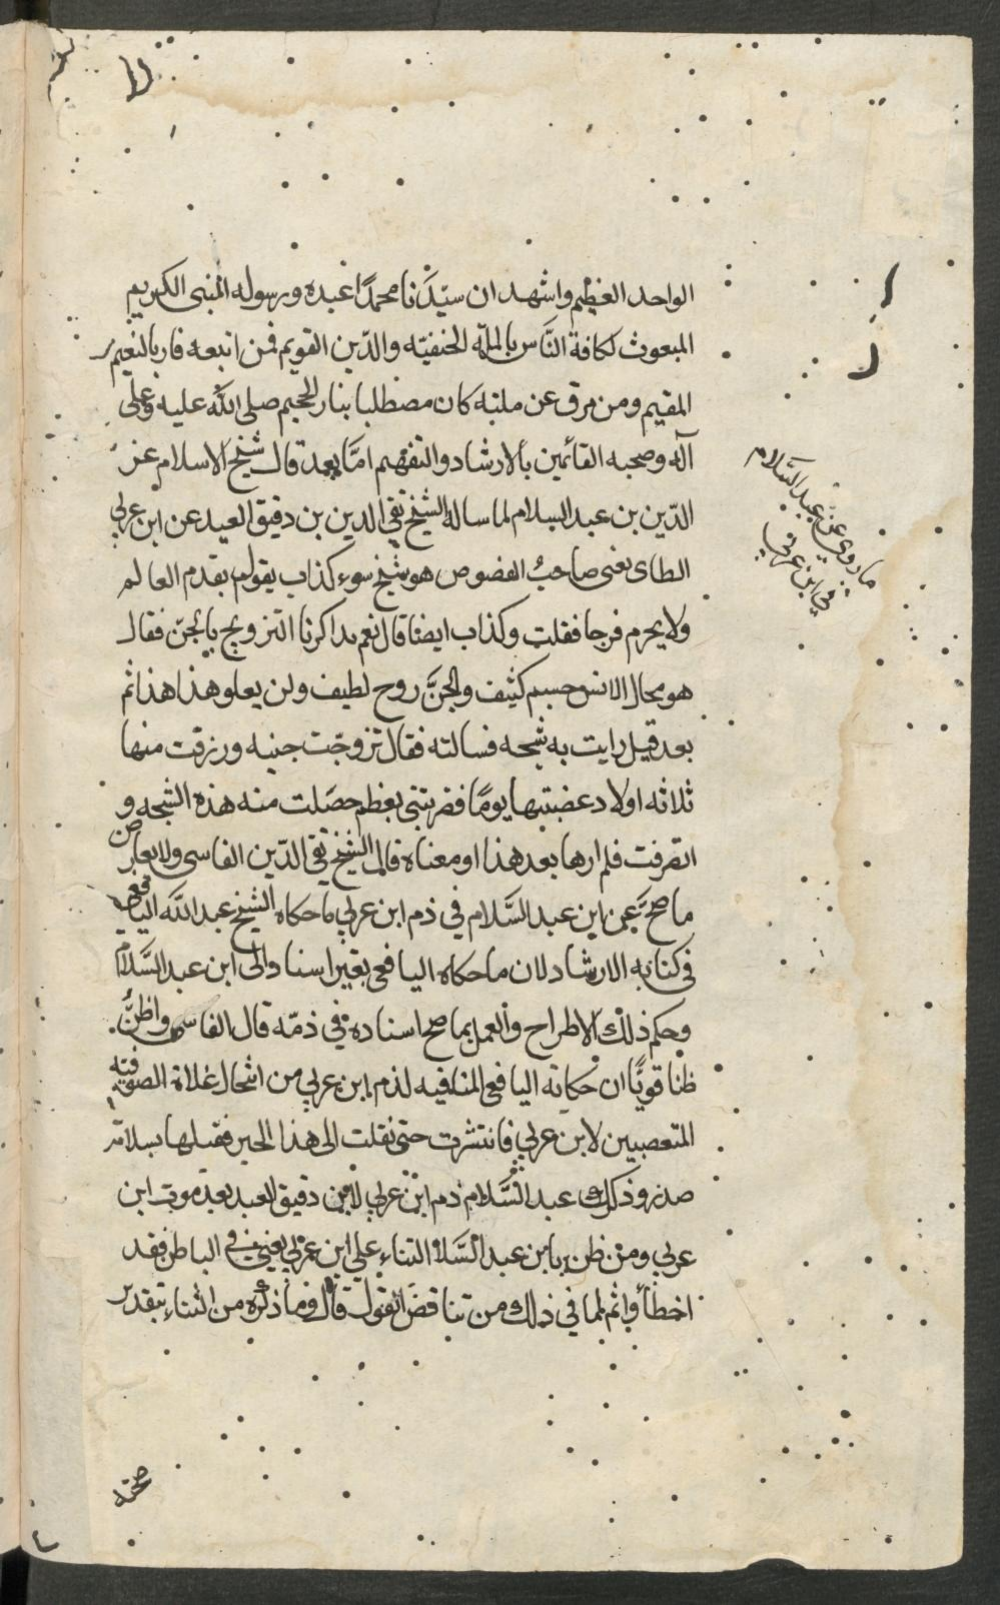 الواحد العظيم واشهد ان سيّدنا محمدًا عبده ورسوله النبى الكريم
المبعوث لكافة النّاس بالملّه الحنفيّه والدّين القويم فمن اتبعه فاز بالنعيم
المقيم ومن مرق عن ملته كان مصطلبا بنار الجحيم صلى الله عليه وعلى
آله وصحبه القائمين بالارشاد والتفهيم امّا بعد قال شيخ الاسلام عز
الدّين بن عبد السلام لما ساله الشيخ تقي الدين بن دقيق العيد عن ابن عربي
الطاى يعنى صاحب الفصوص هو شيخ سوء كذاب يقول بقدم العالم
ولا يحرم فرجا فقلت وكذاب ايضا قال نعم تذاكرنا التزويج بالجنّ فقال
هو محال الانس جسم كثيف والجنّ روح لطيف ولن يعلو هذا هذا ثم
بعد قيل رايت به شجه فسالته فقال تزوجت جنيه ورزقت منها
ثلاثه اولاد غضبتها يومًا فضربتنى بعظم حصّلت منه هذه الشجه و
انصرفت فلم ارها بعد هذا او معناه قال الشيخ تقى الدّين الفاسى ولا يعارض
ما صحّ عن ابن عبد السّلام في ذم ابن عربي ما حكاه الشيخ عبد الله اليافعي
في كتابه الارشاد لان ما حكاه اليافعي بغير اسناد والى ابن عبد السّلام
وحكم ذلك الاطراح والعمل بما صح اسناده في ذمّه قال الفاسى واظنُّ
ظنا قويًّا ان حكاية اليافعي المنافيه لذم ابن عربي من انتحال غلاة الصوفيه
المتعصبين لابن عربي فانتشرت حتى نقلت الى هذا الحين فقبلها بسلامة
صدره وذكر عبد السّلام ذم ابن عربي لابن دقيق العيد بعد موت ابن
عربي ومن ظن بابن عبد السّلام الثناء على ابن عربي يعني في الباطن فقد
اخطأ واثم لما في ذلك من تناقض القول قال وما ذكره من الثناء بتقدير
ما روي عن عبد السّلام
في ابن عربي
صحته